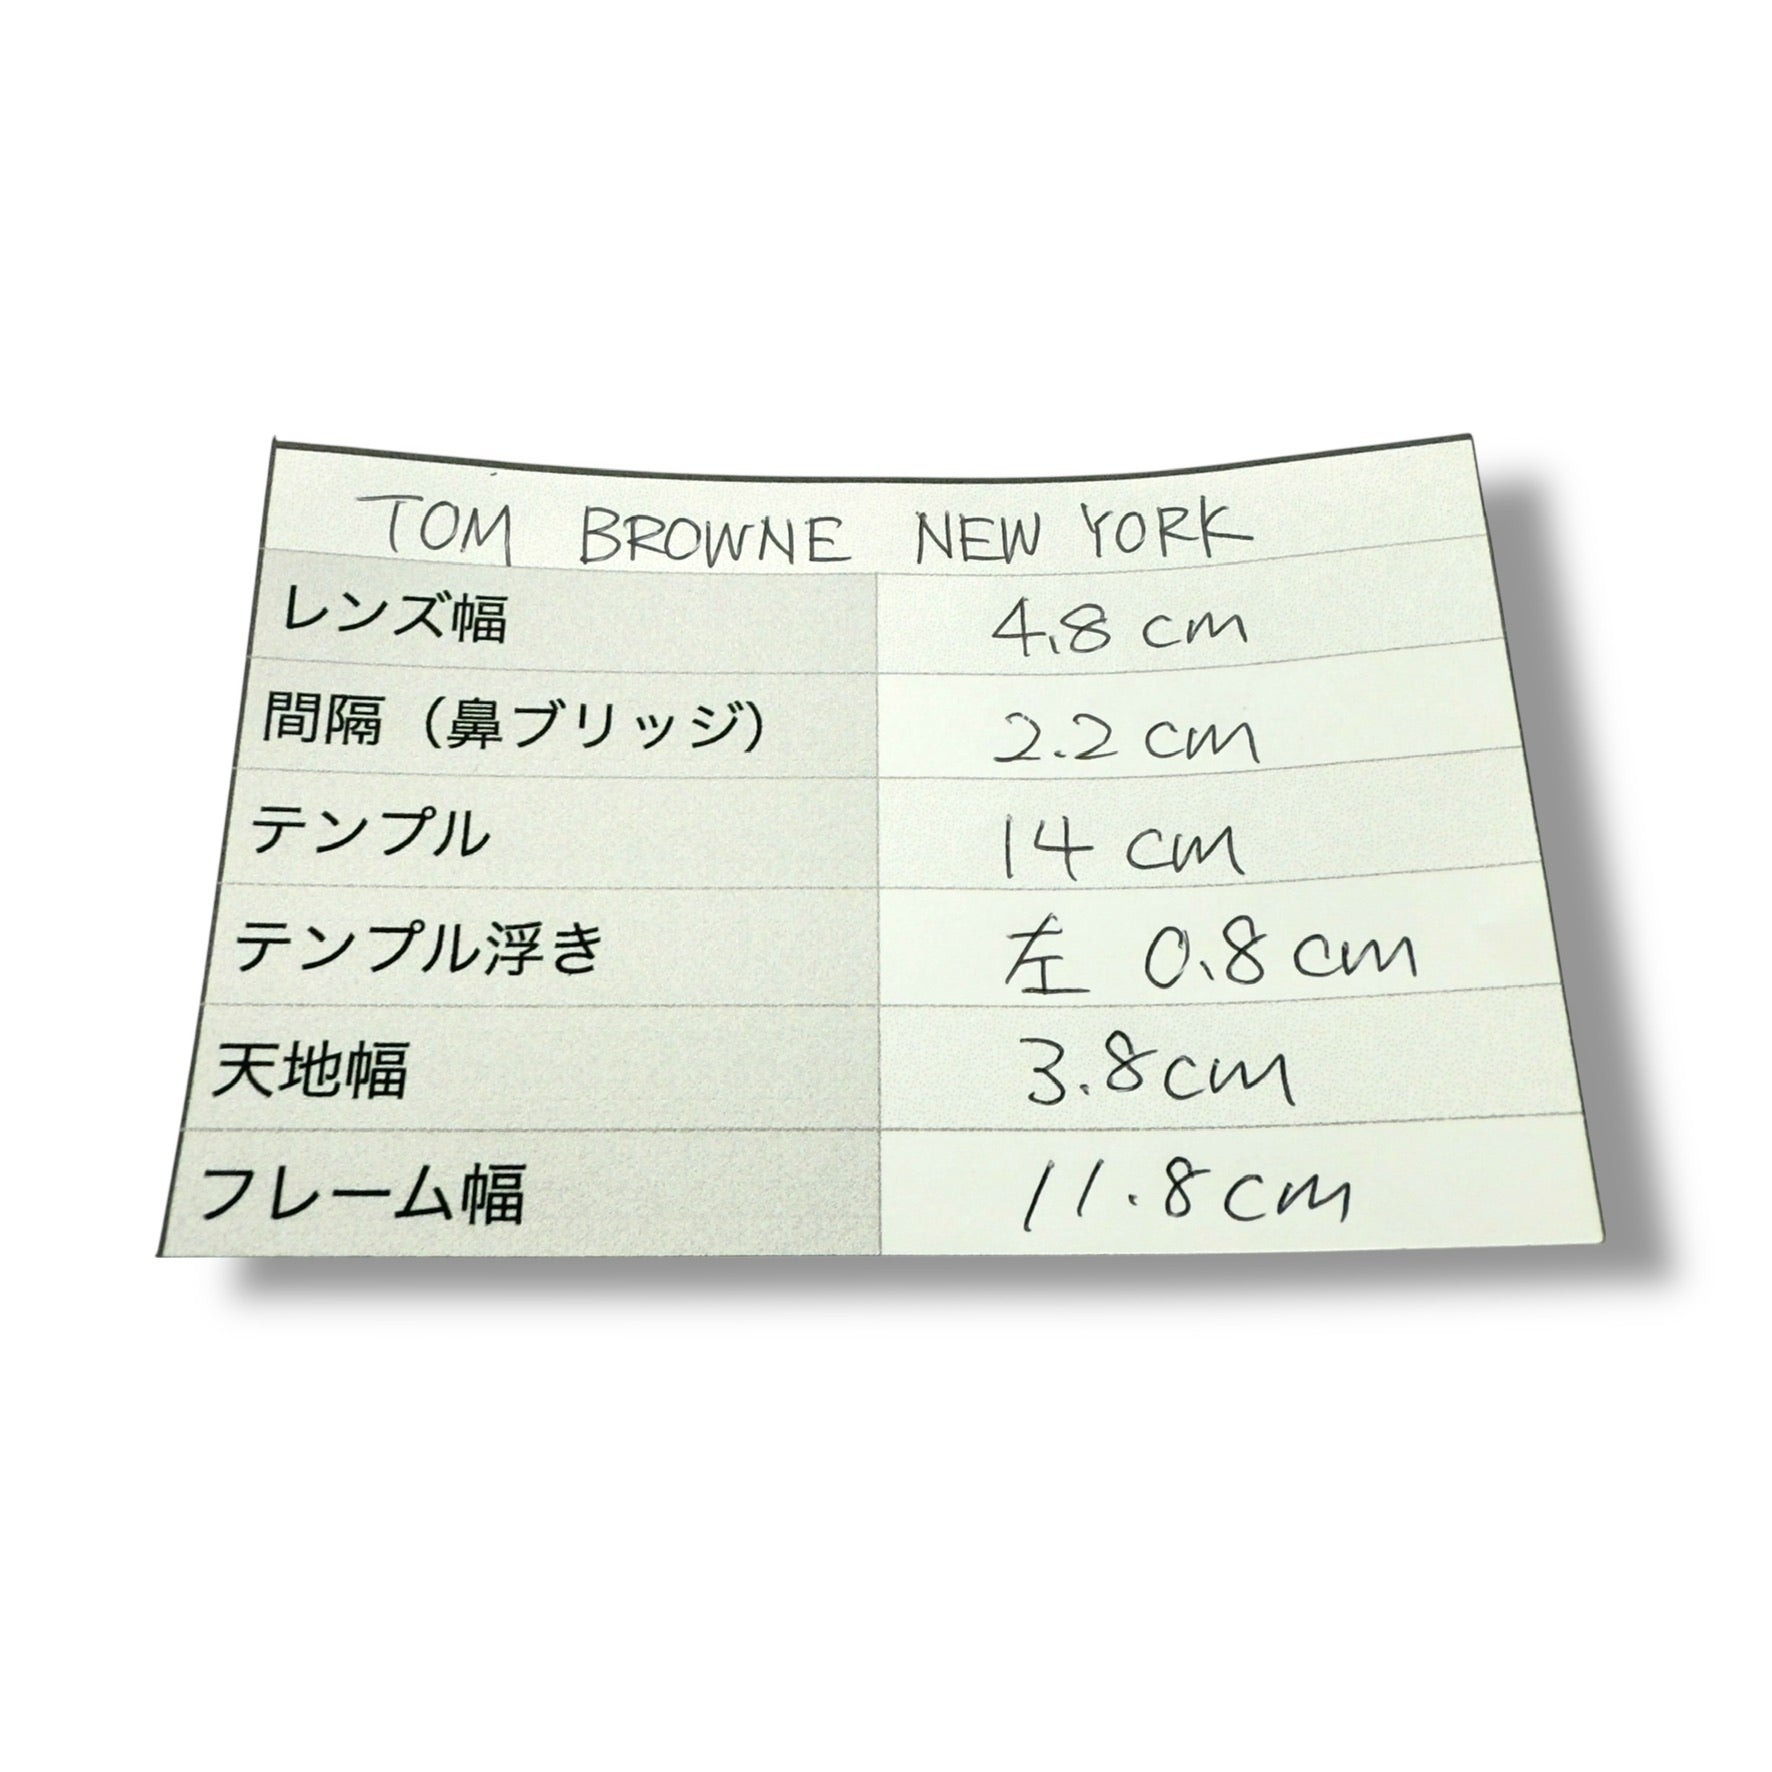 TOM BROWNE NEW YORK
レンズ幅 4.8cm
間隔（鼻ブリッジ） 2.2cm
テンプル 14cm
テンプル浮き 左 0.8cm
天地幅 3.8cm
フレーム幅 11.8cm